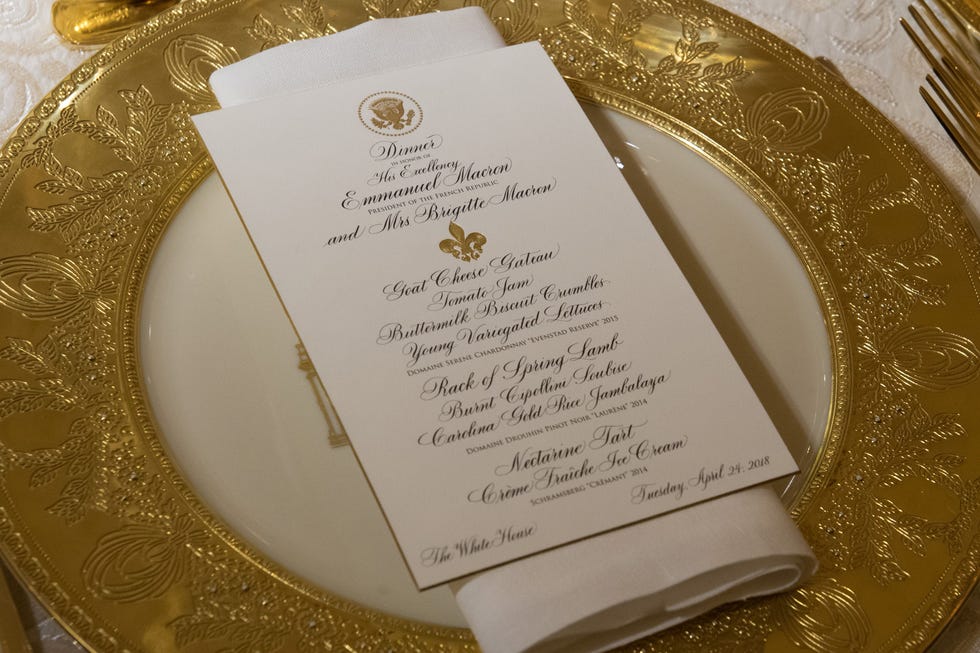 Dinner
IN HONOR OF
His Excellency
Emmanuel Macron
PRESIDENT OF THE FRENCH REPUBLIC
and Mrs Brigitte Macron
Goat Cheese Gateau
Tomato Jam
Buttermilk Biscuit Crumbles
Young Variegated Lettuces
DOMAINE SERENE CHARDONNAY "EVENSTAD RESERVE" 2015
Rack of Spring Lamb
Burnt Cipollini Soubise
Carolina Gold Rice Jambalaya
DOMAINE DROUHIN PINOT NOIR "LAURÈNE" 2014
Nectarine Tart
Crème Fraîche Ice Cream
SCHRAMSBERG "CRÉMANT" 2014
The White House
Tuesday, April 24, 2018